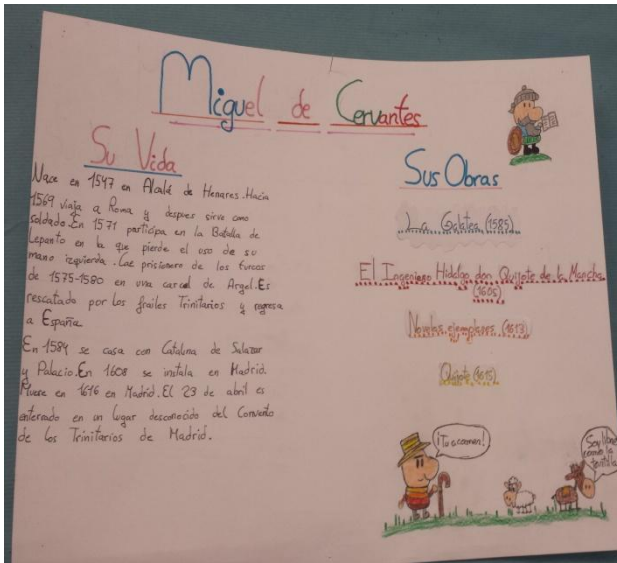 Miguel de Cervantes
Su Vida
Nace en 1547 en Alcalá de Henares. Hacia
1569 viaja a Roma y despues sirve como
soldado. En 1571 participa en la Batalla de
Lepanto en la que pierde el uso de su
mano izquierda. Cae prisionero de los turcos
de 1575-1580 en una carcel de Argel. Es
rescatado por los frailes Trinitarios y regresa
a España.
En 1584 se casa con Catalina de Salazar
y Palacio. En 1608 se instala en Madrid.
Muere en 1616 en Madrid. El 23 de abril es
enterrado en un lugar desconocido del Convento
de los Trinitarios de Madrid.
Sus Obras
La Galatea (1585)
El Ingenioso Hidalgo don Quijote de la Mancha
(1605)
Novelas ejemplares (1613)
Quijote (1615)
¡Tu a comer!
Soy libre
como la
tortilla